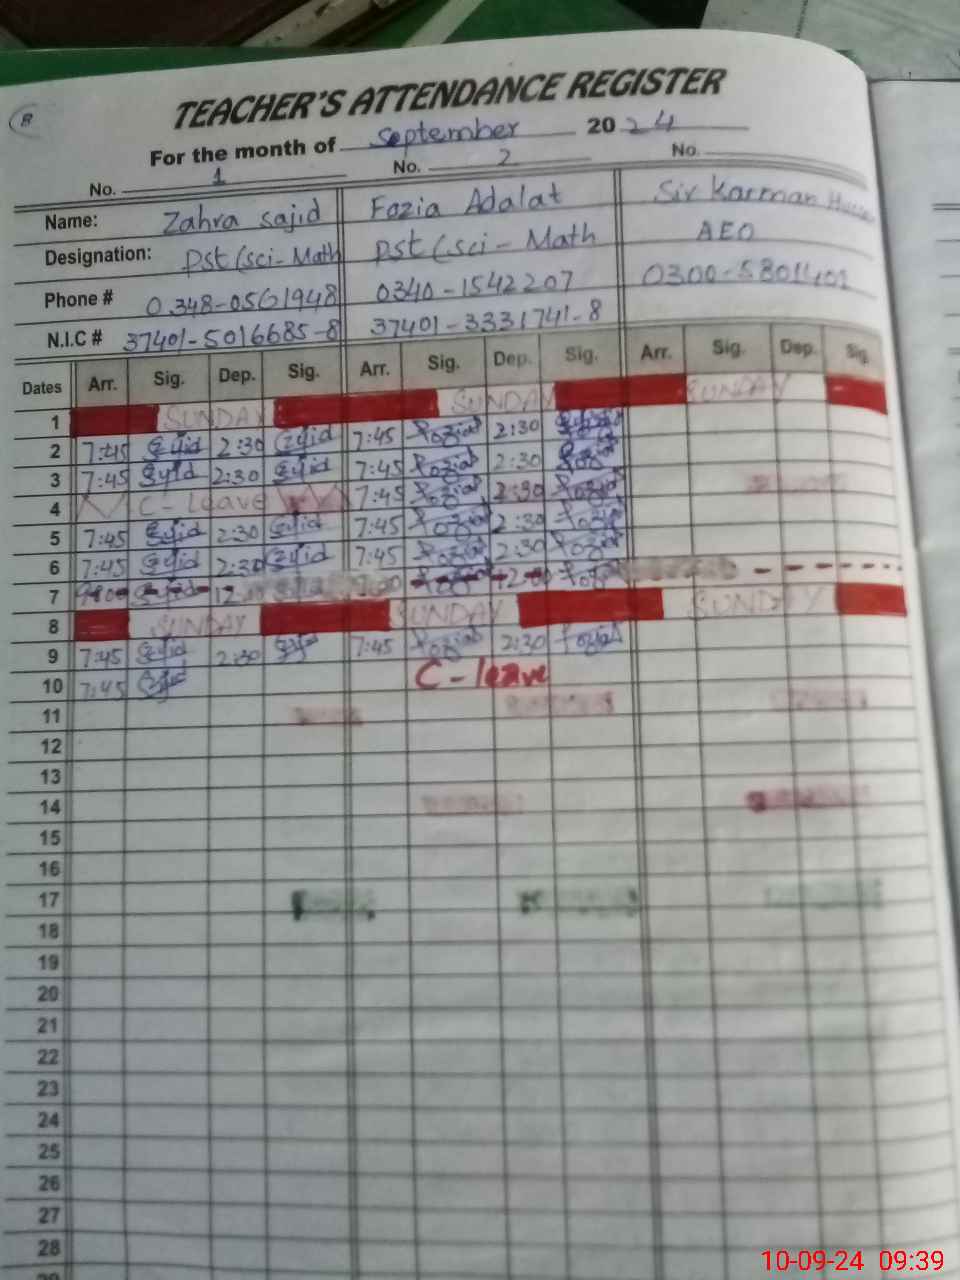 TEACHER'S ATTENDANCE REGISTER
For the month of September 2024
No. 1 No. 2 No.
Name: Zahra Sajid Fozia Adalat Sir Karman
Designation: Pst (sci-Math Pst (sci-Math AEO
Phone # 0348-0561948 0340-1542207
N.I.C # 37401-5016685-8 37401-3331741-8
Dates Arr. Sig. Dep. Sig. Arr. Sig. Dep. Sig. Arr. Sig. Dep. Sig.
1 SUNDAY SUNDAY SUNDAY
2 7:45 2:30 7:45 Fozia 2:30
3 7:45 2:30 7:45 Fozia 2:30
4 C-Leave 7:45 Fozia 2:30 Fozia
5 7:45 2:30 7:45 Fozia 2:30 Fozia
6 7:45 2:30 7:45 Fozia 2:30 Fozia
7
8 SUNDAY SUNDAY SUNDAY
9 7:45 2:30 7:45 Fozia 2:30 Fozia
10 7:45 C-leave
11
12
13
14
15
16
17
18
19
20
21
22
23
24
25
26
27
28
10-09-24 09:39